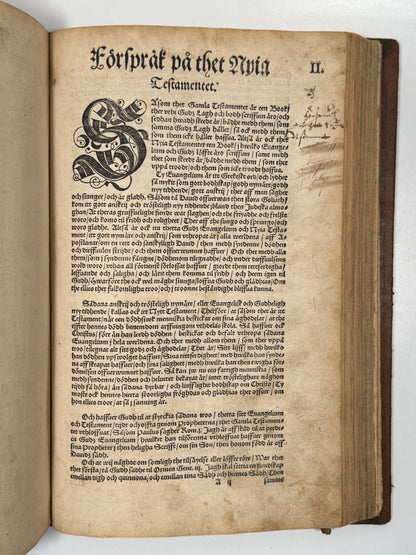 Förspråk på thet Nyia
II.
Testamentet.
SÅsom thet Gamla Testamentet är een Book/
ther vthi Gudz Lagh och bodh scriffuin äro/och
hwadhan bwadht skedt är/ bådhe medh them/som
samma Gudz Lagh hållet / så ock medh them
som them icke hållet haffua. Altså är ock thet
Nyia Testamentet een Book / hwilko Evangelium
och Gudz löffte äro scriffuin / samt medh
thet som skedt är/bådhe medh them / som ther
vppå troodt / och them som icke troodt haffua.
Ty Euangelium är itt Grekeskt ord / och lydher
så mykit som gott bodhskap /godh nymäre/ godh
ny tidhende/ gott anskrij / aff thet man gerna hörer
och siunger / och är gladh. Såsom tå Dauid offuerwan thet stora Goliath/
kom itt gott anskrij och trösteligh ny tidhende ibland thet Judeska almoghan/
At theras grufselighe fiende war slaghen/ och the frijadhe och frelste
woro/och komne til fridh och roligheet/ Ther aff the siungo och sprungo/och
woro gladhe. Altså är ock nu thetta Gudz Euangelium och Nyia Testament
/ itt gott nymäre och anskrij / som vthropat är j alla werldena / aff Apostlanar
/om en rett och sannskyldigh Dauid / then medh syndenne / döden
och dieffuulen stridt haffuer / och them offuerwunnit / Och ther medh alla
them/som j syndenne fångne / dödhenom tilsaghde/ och vnder dieffuulsens
wold woro / vthan all förtienst förlossat haffuer / giordt them rettferdigha/
leffuande och saligha/ och sändt them komna til fridh / och heem igen til
Gudh/Hwarföre the ock må siunga tacka och loffua Gudh/och gladhe wara/Om
the ellies ther folkomligha troo/och j troonne bestondughe bliffua kunna.
Sådana anskrij och trösteligh nymäre/ eller Evangelisk och Gudheligh
ny tidhende/kallas ock itt Nyt Testament/ Therföre/ at såsom thet är itt
Testament/när een dödhsiuk menniskia beskickar om sina ägodelar / at the
effter hennes dödh benemdom arffuingom vthdelas skola. Så haffuer ock
Christus/ förr än han leedh dödhen / beskickat och befalet vthropa sådana
Euangelium j hela werldena. Och ther medh allom them / som ther vppå
troo/giffuit til äghodelar alt thet han haffuer/ Thet är/ Sitt liff/ medh hwilko han
dödhen vpswolghit haffuer/ Sina rettferdigheet/medh hwilko han synden
aff skrapat haffuer / och salighena / medh hwilko han then ewigha fördömelsen
offuerwunnit haffuer. Så kan jw nu een fattigh menniskia / som
medh syndenne/ döden och heluetet bekayat är/ intet trösteligare någhon
tidh få höra/ än sådana dyrbar/ och liufflight bodhskap om Christo/ Ty
moste ock hennes hierta storligha fröghdas och gläädhias ther offuer/ om
hon ellies troor/ at så j sanning är.
Och haffuer Gudh til at styrckia sådana troo / thetta sitt Euangelium
och Testament/tijdt och offta genom Propheterna / ther Gamla Testamentet
vthloffuat/ Såsom Paulus sägher Rom.j. Jagh är skild til at predica
Gudz Euangelium / hwilket han tilförenna vthloffuat haffuer genom
sina Propheter/ then heligha Scrifft/ om sin Son/ then honom född är aff
Dauidz sädh.
Och at wij någhot om somligh the tilsäyelse eller löffte röre / War thet
ther första/ tå Gudh sadhe til Ormen Gene. iij. Jagh skal sättia fiendskap
emellan tigh och quinnona/ och emellan tina Sädh och hennes Sädh/ Then
A ij
samme